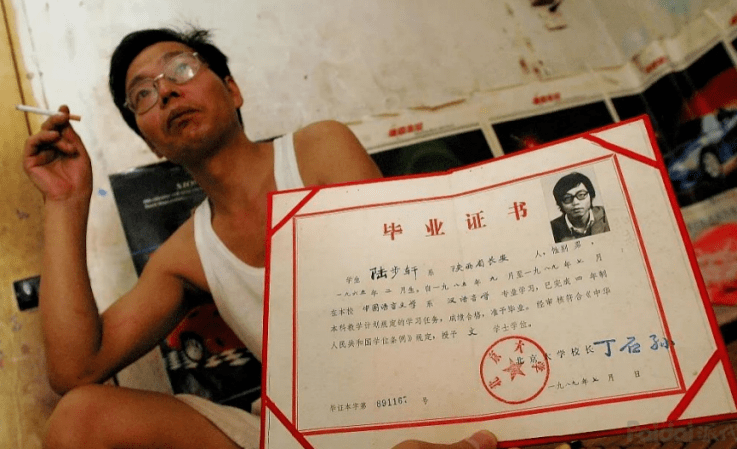 毕业证书
学生 陆步轩 系 陕西省长安 人，性别 男，
一九六五年 二 月生。自一九八五年 九 月至一九八九年 七 月
在本校 中国语言文学 系 汉语言学 专业学习，已完成 四 年制
本科教学计划规定的学习任务，成绩合格，准予毕业。经审核符合《中华
人民共和国学位条例》规定，授予 文 学士学位。
北京大学校长 丁石孙
北京大学
一九八九年七月 日
毕证本字第 89116 号